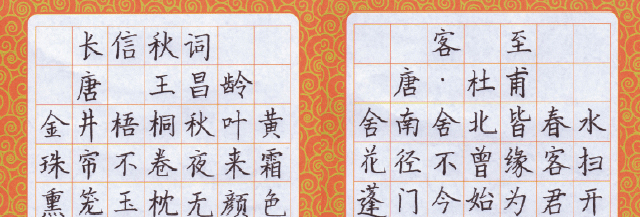 长信秋词
唐 王昌龄
金井梧桐秋叶黄
珠帘不卷夜来霜
熏笼玉枕无颜色
客至
唐·杜甫
舍南舍北皆春水
花径不曾缘客扫
蓬门今始为君开